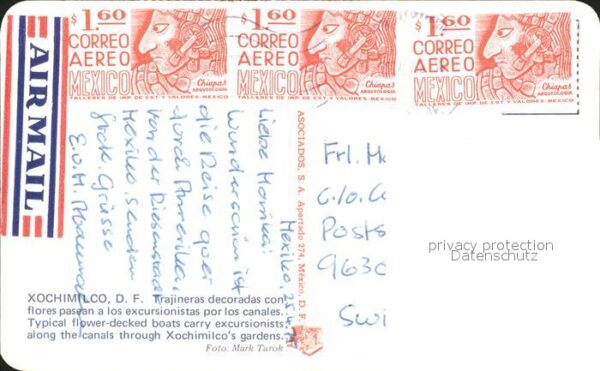 AIR MAIL
$1.60
CORREO
AEREO
MEXICO
Chiapas
ARQUEOLOGIA
TALLERES DE IMP. DE EST. Y VALORES-MEXICO
$1.60
CORREO
AEREO
MEXICO
Chiapas
ARQUEOLOGIA
TALLERES DE IMP. DE EST. Y VALORES-MEXICO
$1.60
CORREO
AEREO
MEXICO
Chiapas
ARQUEOLOGIA
TALLERES DE IMP. DE EST. Y VALORES-MEXICO
Mexiko, 25.4.
Liebe Monika!
Wunderschön ist
die Reise quer
durch Amerika,
von der Riesenstadt
Mexiko senden
Grüsse
E. u. H.
ASOCIADOS, S. A. Apartado 274, México, D. F.
Frl.
c/o
Posts
9630
Swi
privacy protection
Datenschutz
XOCHIMILCO, D. F. Trajineras decoradas con
flores pasean a los excursionistas por los canales.
Typical flower-decked boats carry excursionists
along the canals through Xochimilco's gardens.
Foto: Mark Turok